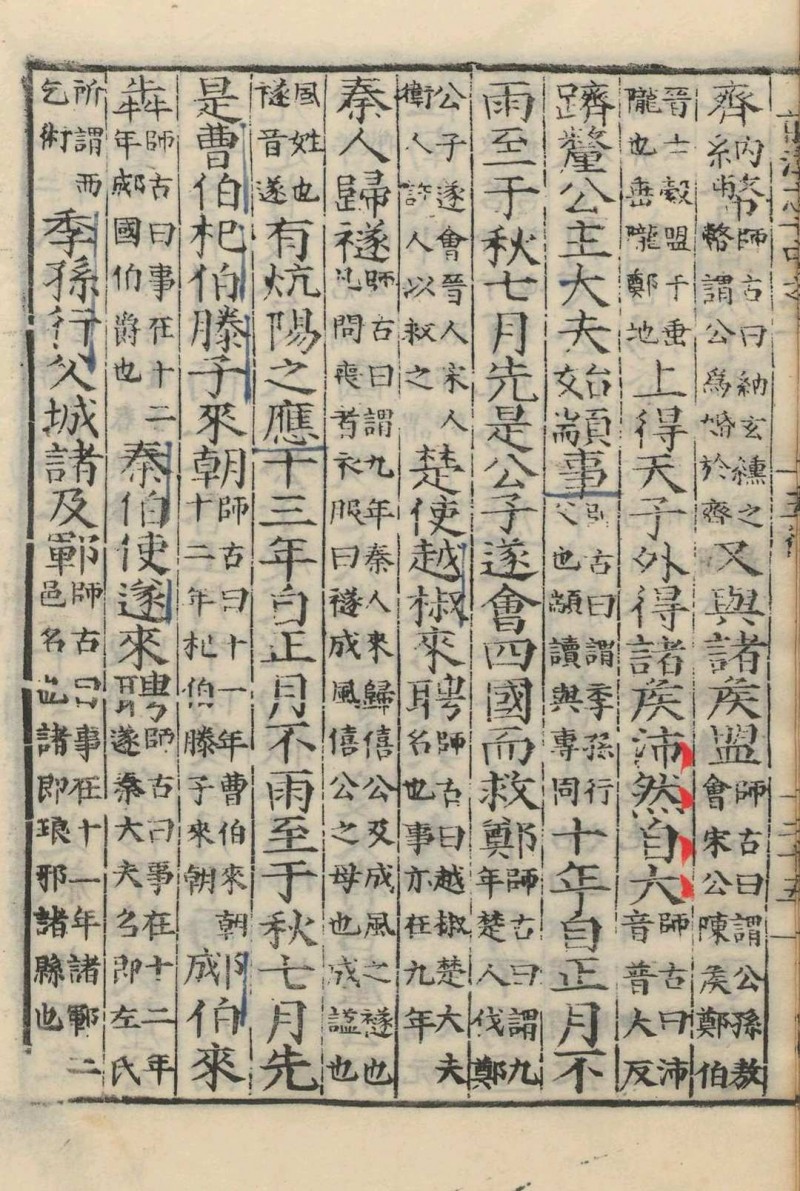 齊納幣師古曰納玄纁之幣謂公爲婚於齊又與諸侯盟師古曰謂公孫敖會宋公陳侯鄭伯
晉士縠盟于垂隴也垂隴鄭地上得天子外得諸侯沛然自大師古曰沛音普大反
躋釐公主大夫始顓事師古曰謂季孫行父也顓讀與專同十年自正月不
雨至于秋七月先是公子遂會四國而救鄭師古曰謂九年楚人伐鄭
公子遂會晉人宋人衞人許人以救之楚使越椒來聘師古曰越椒楚大夫名也事亦在九年
秦人歸襚師古曰謂九年秦人來歸僖公及成風之襚也凡問喪者衣服曰襚成風僖公之母也成謚也
風姓也襚音遂有炕陽之應十三年自正月不雨至于秋七月先
是曹伯杞伯滕子來朝師古曰十一年曹伯來朝十二年杞伯滕子來朝郕伯來
犇師古曰事在十二年郕國伯爵也秦伯使遂來聘師古曰事在十二年遂秦大夫名即左氏
所謂西乞術季孫行父城諸及鄆師古曰事在十一年諸鄆二邑名也諸即琅邪諸縣也